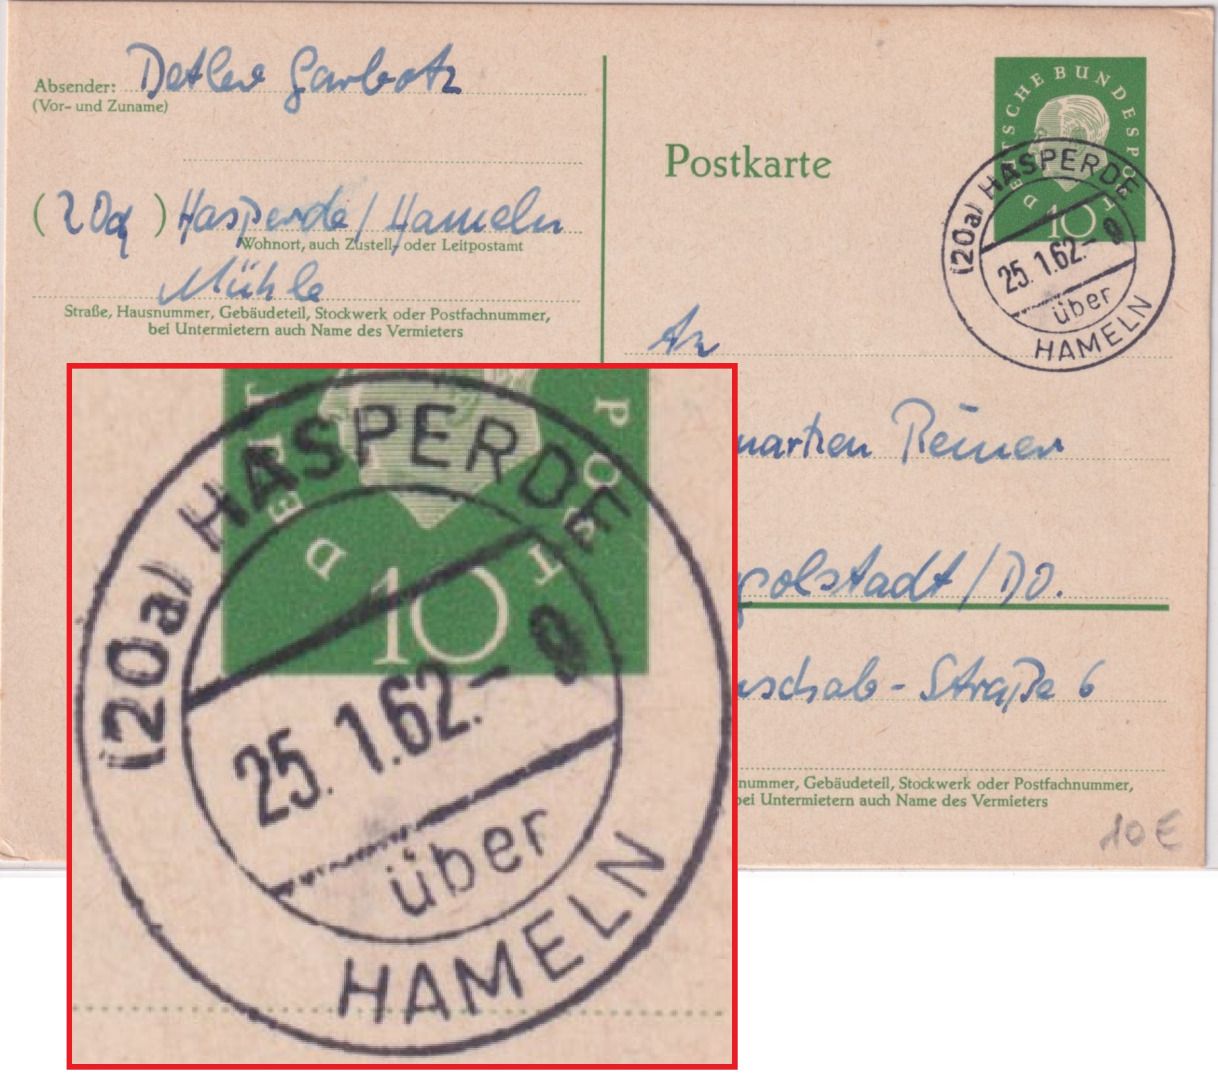 Absender: Detlev Garbotz
(Vor- und Zuname)
(20a) Hasperde / Hameln
Wohnort, auch Zustell- oder Leitpostamt
Mühle
Straße, Hausnummer, Gebäudeteil, Stockwerk oder Postfachnummer,
bei Untermietern auch Name des Vermieters
Postkarte
DEUTSCHE BUNDESPOST
10
(20a) HASPERDE
25. 1.62.-
über
HAMELN
An
Reiner
olstadt / DO.
- Straße 6
nummer, Gebäudeteil, Stockwerk oder Postfachnummer,
bei Untermietern auch Name des Vermieters
10 €
D
POST
10
(20a) HASPERDE
25. 1.62.-
über
HAMELN